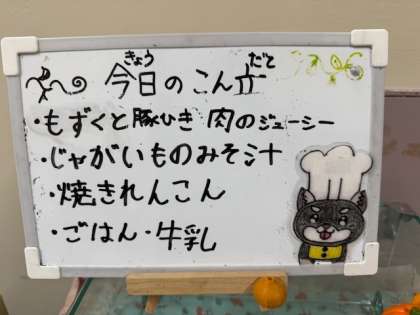 今日のこん立
・もずくと豚ひき肉のジューシー
・じゃがいものみそ汁
・焼きれんこん
・ごはん・牛乳